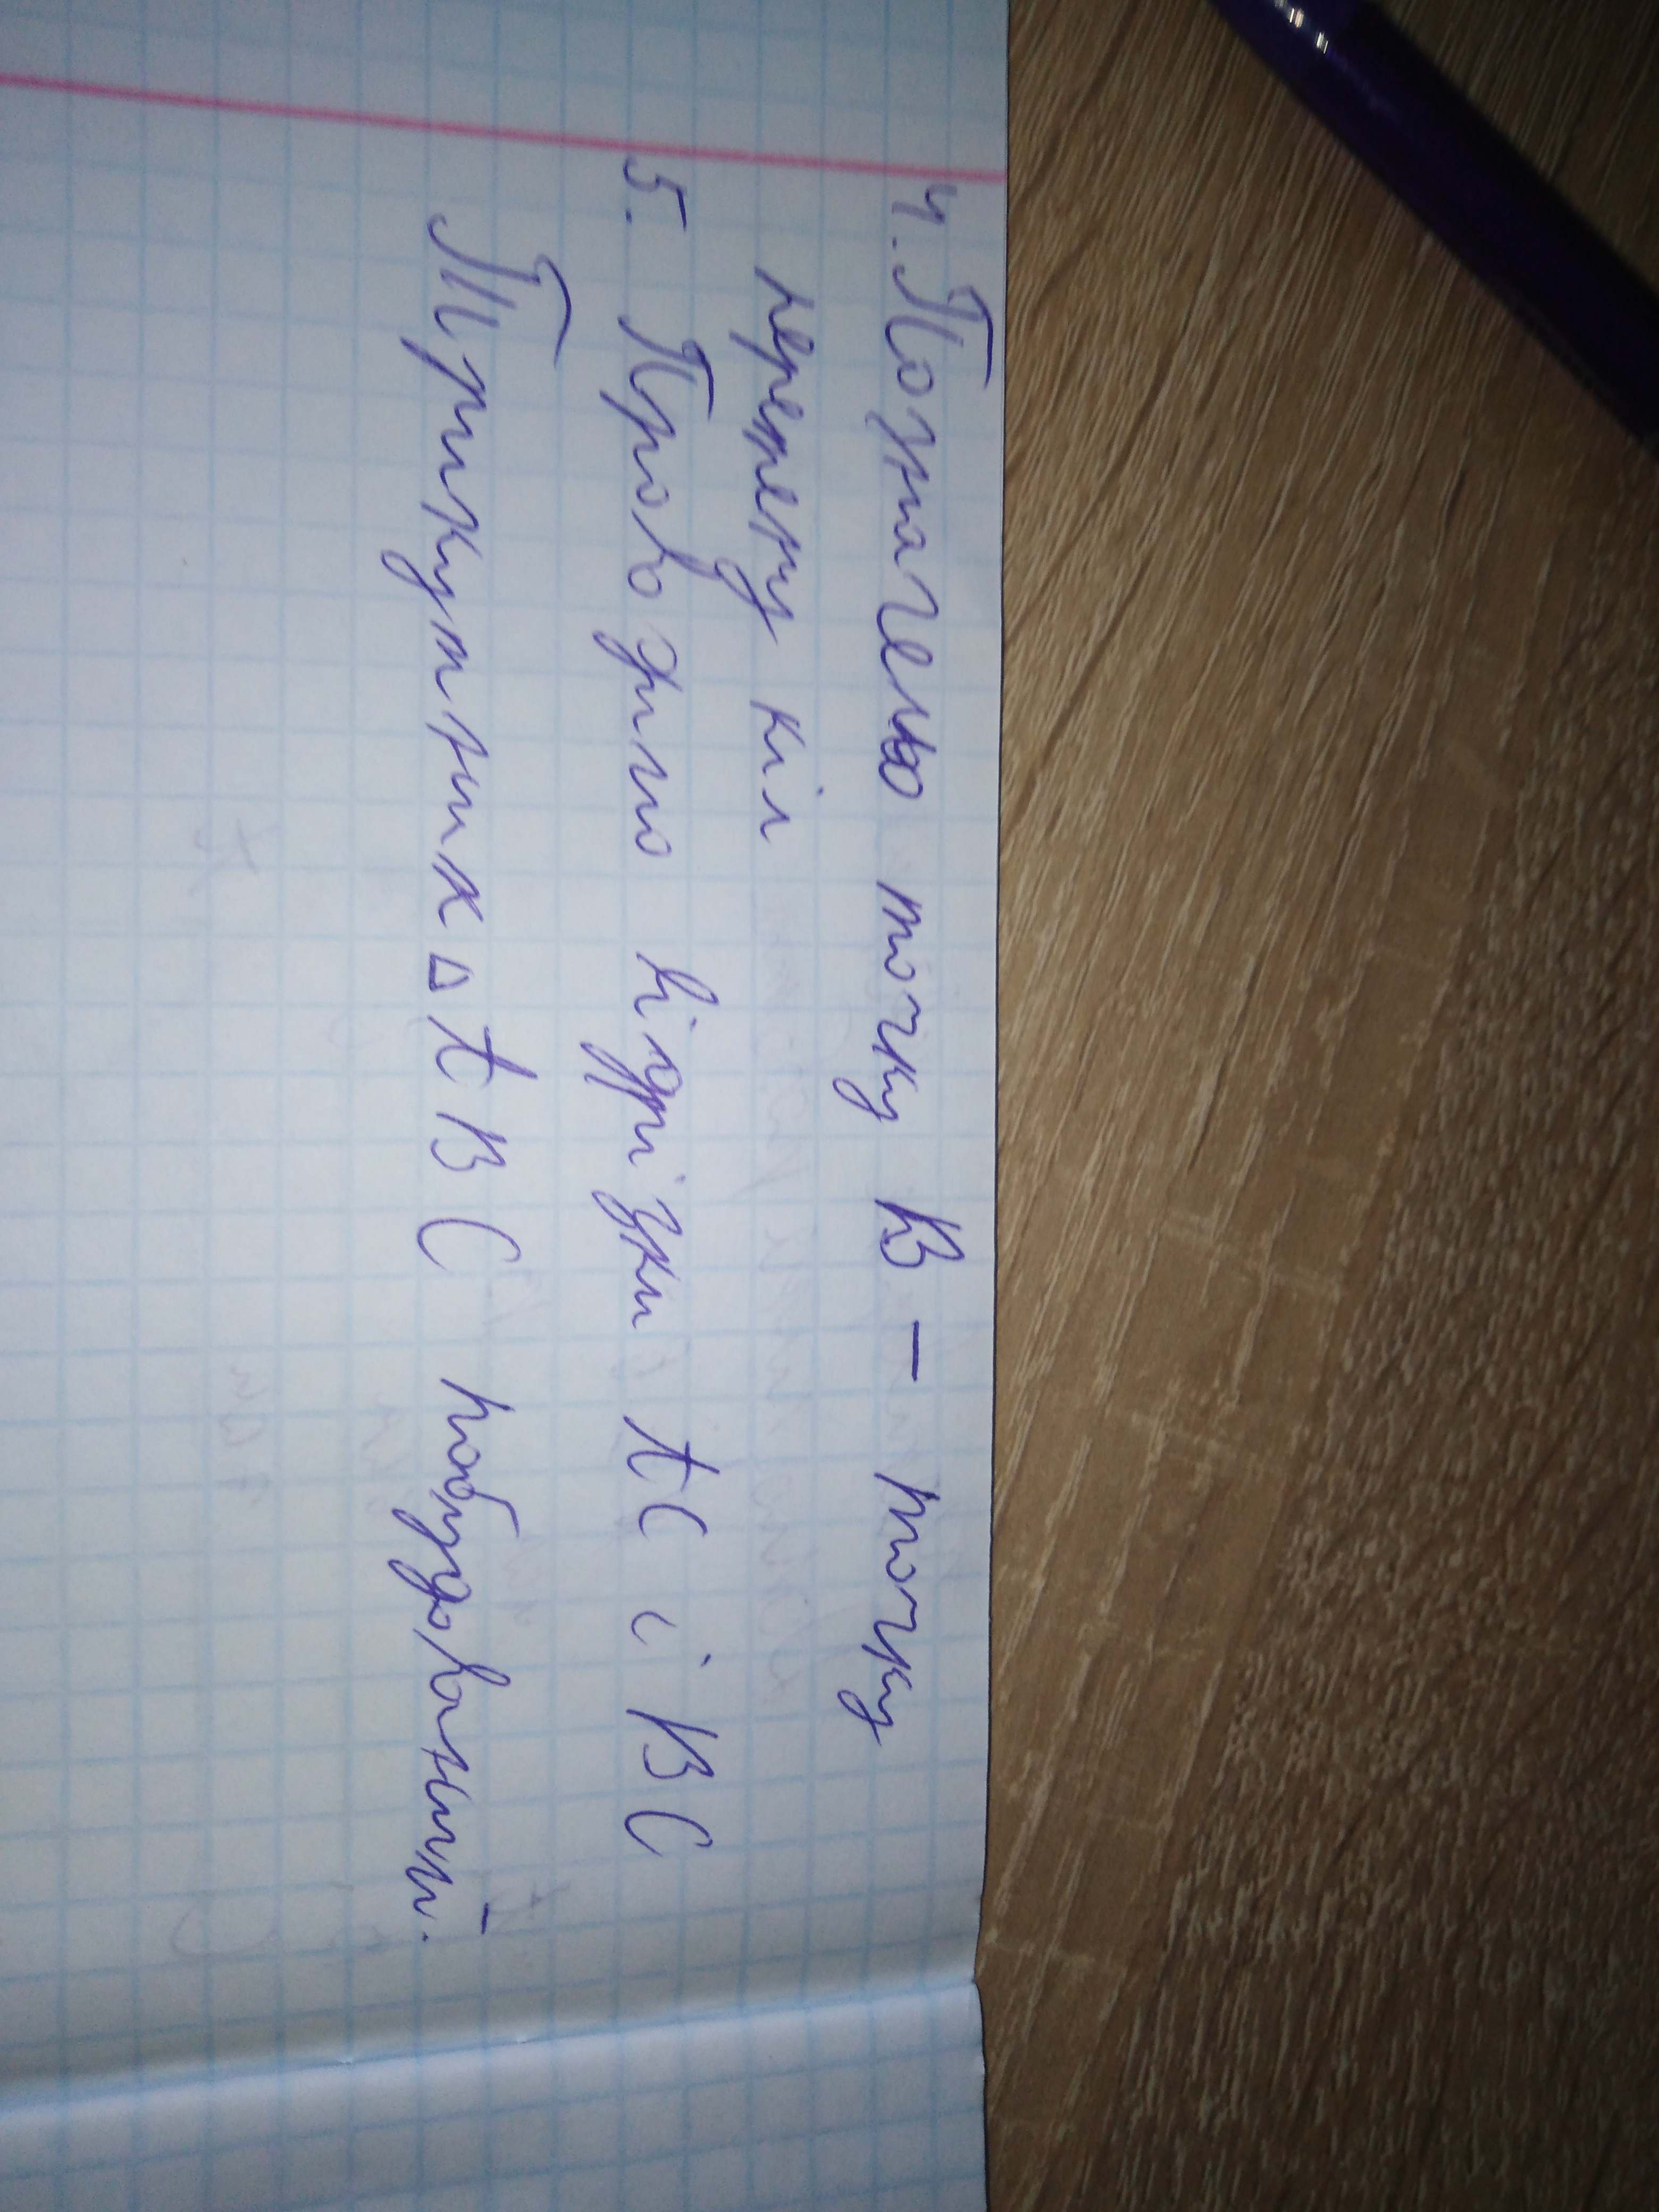 4. Позначаю точку B - точку
перерену кіл
5. Провожимо відрізки AC і BC
Трикутник △ABC побудований.